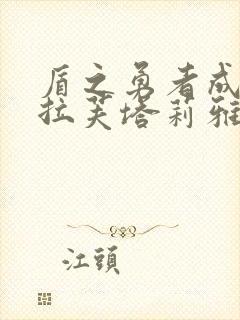 盾之勇者成
拉芙塔莉雅
江頭